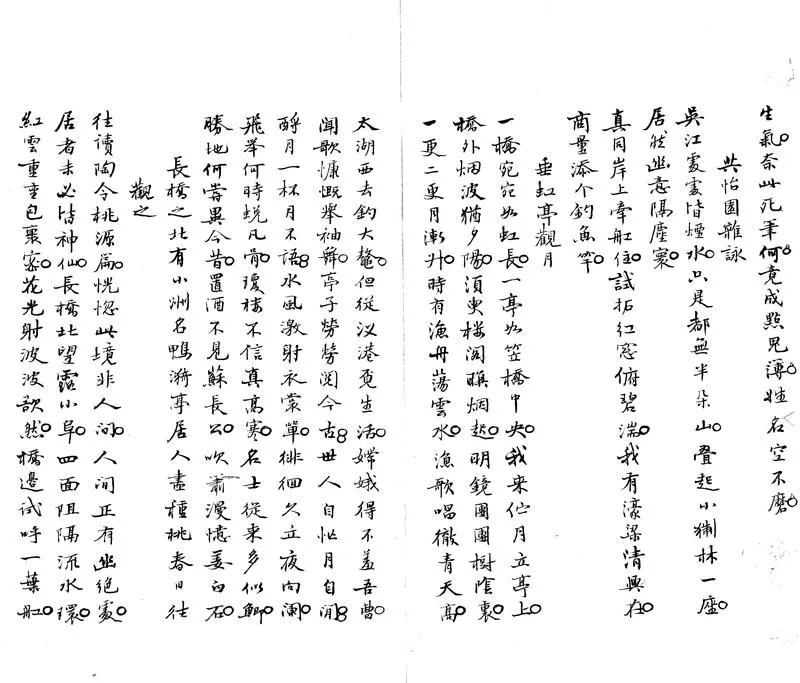 生氣奈此死筆何竟成點兒薄姓名空不磨
共怡園雜詠
吳江處處皆煙水只是都無半朵山疊起小獅林一座
居然幽意隔塵寰
真同岸上牽舡住試拓紅窓俯碧湍我有濠梁清興在
商量添个釣魚竿
垂虹亭觀月
一橋宛宛如虹長一亭如笠橋中央我來伫月立亭上
橋外烟波猶夕陽須臾樓閣暝烟起明鏡團團樹陰裏
一更二更月漸升時有漁舟蕩雲水漁歌唱徹青天高
太湖西去釣大鼇但從汊港覓生活嫦娥得不羞吾曹
聞歌慷慨舉袖舞亭子勞勞閱今古世人自忙月自閒
酹月一杯月不語水風激射衣裳單徘徊久立夜向闌
飛舉何時蛻凡骨瓊樓不信真高寒名士從來多似鯽
勝地何嘗異今昔置酒不見蘇長公吹簫漫憶姜白石
長橋之北有小洲名鴨漪亭居人盡種桃春日往
觀之
往讀陶令桃源篇恍惚此境非人间人間正有幽絕處
居者未必皆神仙長橋北望露小阜四面阻隔流水環
紅雲重重包裹密花光射波波欲然橋邊試呼一葉舡